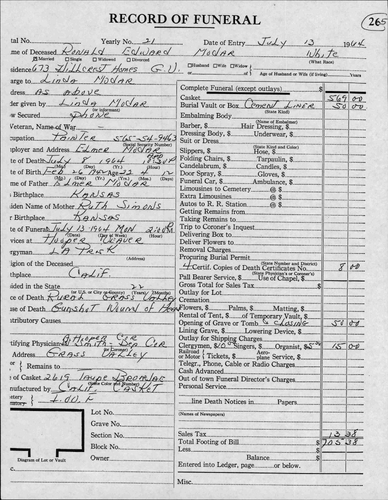 RECORD OF FUNERAL
265
tal No. Yearly No. 21 Date of Entry July 13 1964
me of Deceased Ronald Edward Modar White
Married Single Widowed Divorced Husband Wife Widow (What Race)
sidence 673 Hillcrest Homes G.V. of Age of Husband or Wife (if living) Years
arge to Linda Modar
dress As Above
der given by Linda Modar
w Secured Phone
Veteran, Name of War
cupation Painter 565-54-9463
ployer and Address Elmer Modar
te of Death July 8 1964
te of Birth Feb 26
me of Father Elmer Modar
Birthplace Kansas
iden Name of Mother Ruth Simons
r Birthplace Kansas
te of Funeral July 13 1964 Mon 2:00 PM
vices at Hooper Weaver
rgyman
igion of the Deceased
thplace Calif
sided in the State 22
ce of Death Rural Grass Valley
use of Death Gunshot Wound of Head
tributary Causes
tifying Physician
Address Grass Valley
or Remains to
e of Casket 2619 Taupe
nufactured by Calif Casket
etery I.O.O.F
Lot No.
Grave No.
Section No.
Block No.
Owner
Diagram of Lot or Vault
Complete Funeral (except outlays) $
Casket 569 00
Burial Vault or Box Cement Liner 50 00
(State Kind)
Embalming Body
(Name of Embalmer)
Barber, $ Hair Dressing, $
Dressing Body, $ Underwear, $
Suit or Dress
(State Kind and Color)
Slippers, $ Hose, $
Folding Chairs, $ Tarpaulin, $
Candelabrum, $ Candles, $
Door Spray, $ Gloves, $
Funeral Car, $ Ambulance, $
Limousines to Cemetery @ $
Extra Limousines @ $
Autos to R. R. Station @ $
Getting Remains from
Taking Remains to
Trip to Coroner's Inquest
Delivering Box to
Deliver Flowers to
Removal Charges
Procuring Burial Permit
4 Certif. Copies of Death Certificates No. 8 00
Pall Bearer Service, $ Use of Chapel, $
Gross Total for Sales Tax $
Outlay for Lot
Cremation
Flowers, $ Palms, $ Matting, $
Rental of Tent, $ of Temporary Vault, $
Opening of Grave or Tomb & Closing 50 00
Lining Grave, $ Lowering Device, $
Outlay for Shipping Charges
Clergymen, $10 Singers, $ Organist, $5 15 00
Railroad or Motor Tickets, $ Aeroplane Service, $
Telegr., Phone, Cable or Radio Charges
Cash Advanced
Out of town Funeral Director's Charges
Personal Service
line Death Notices in Papers
(Names of Newspapers)
Sales Tax 13 38
Total Footing of Bill $ 705 38
Less $
Balance $
Entered into Ledger, page or below.
Misc.